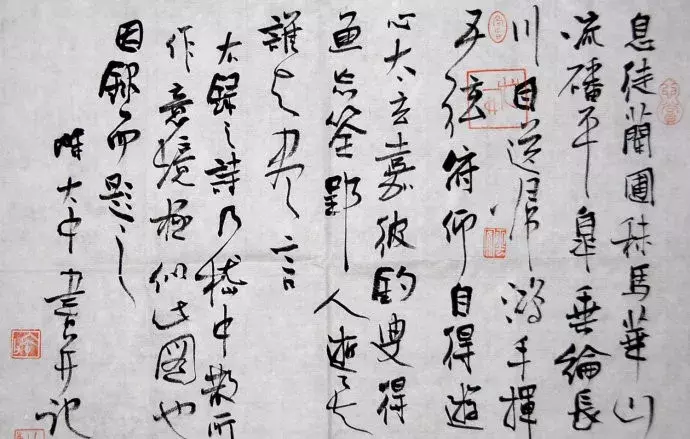 息徒蘭圃秣馬華山
流磻平皋垂綸長
川目送歸鴻手揮
五弦俯仰自得遊
心太玄嘉彼釣叟得
魚忘筌郢人逝矣
誰与盡言
右錄之詩乃嵇中散所
作意境極似此圖也
因錄而題之
大中書并記